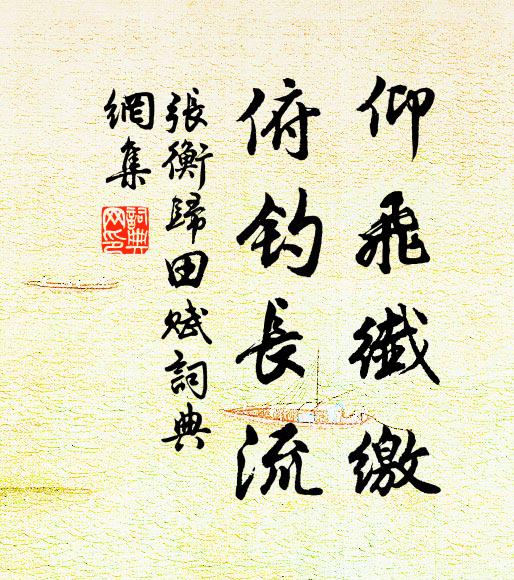 仰飛纖繳
俯钓長流
張衡歸田賦詞典
網集
詞典网印